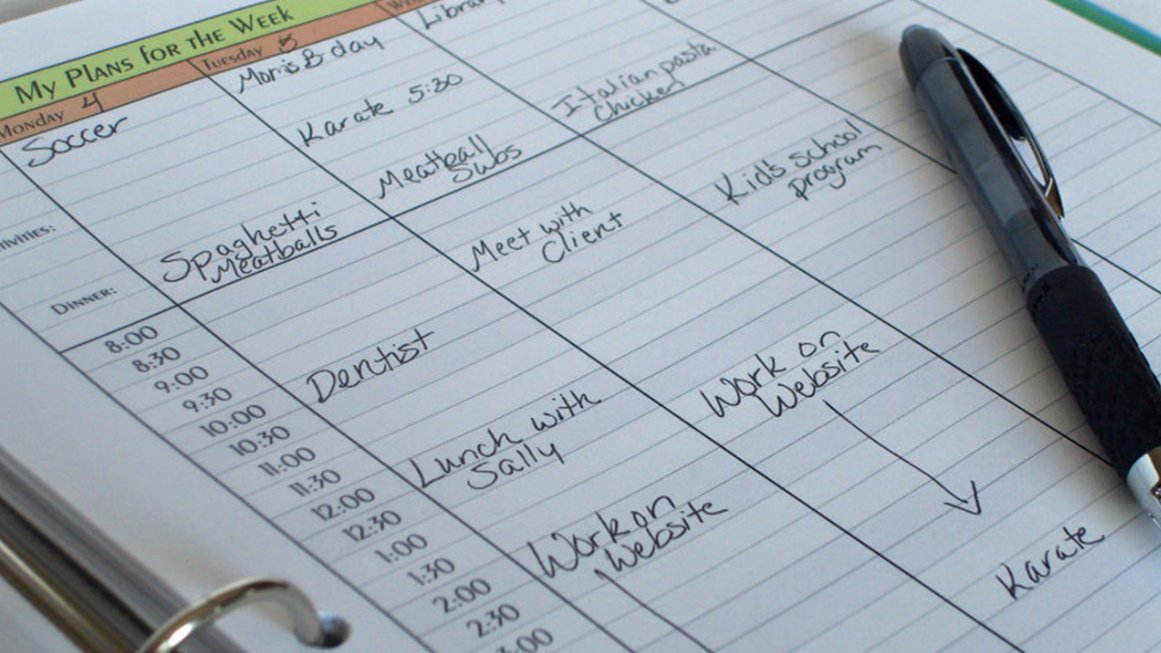 My Plans for the Week
Monday 4
Tuesday 5
Soccer
Mom's B day
Library
Karate 5:30
Spaghetti
Meatballs
Meatball
Subs
Italian pasta
Chicken
Dinner:
8:00
8:30
9:00
9:30
10:00
10:30
11:00
11:30
12:00
12:30
1:00
1:30
2:00
2:30
3:00
Dentist
Lunch with
Sally
Meet with
Client
Work on
Website
Kid's school
program
Work on
Website
Karate